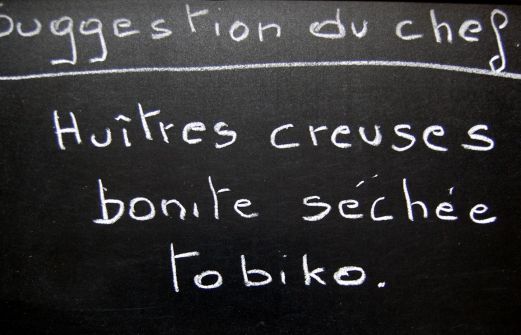 Suggestion du chef
Huîtres creuses
bonite séchée
tobiko.